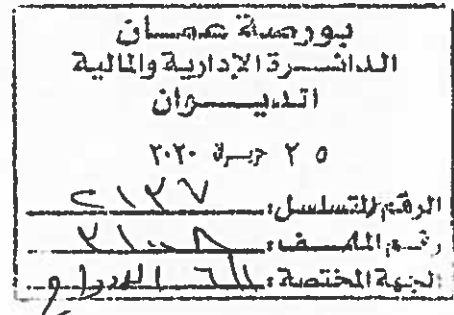 بورصة عمسان
الدائسسرة الإدارية والمالية
الديسسوان
٢٥ حزيران ٢٠٢٠
الرقم المتسلسل:
رقم الملف: ٢١٠٠٨
الجهة المختصة: